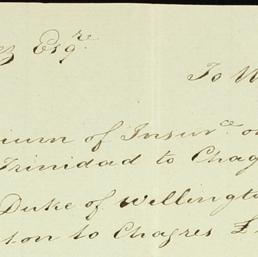 Esqre.
To
ium of Insurce. o
Trinidad to Chag
Duke of Wellingto
ton to Chagres £